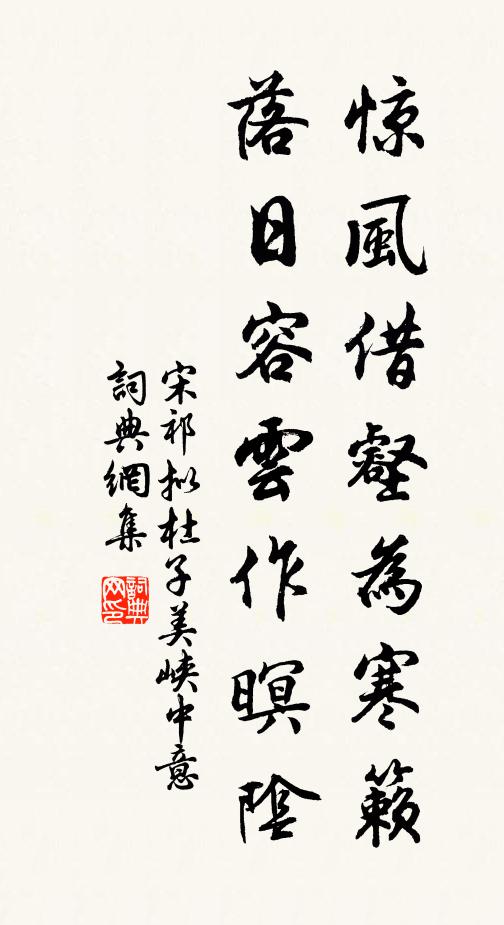 惊風借壑為寒籟
落日容雲作暝陰
宋祁拟杜子美峡中意
詞典網集
詞典网印